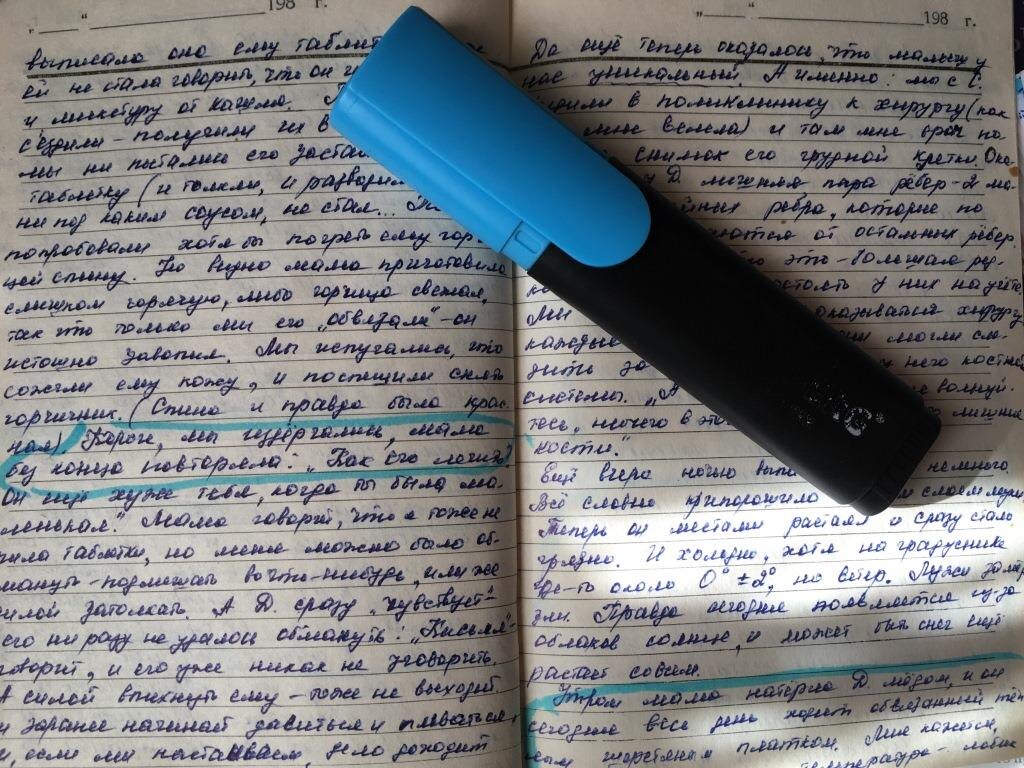 198 г.
выписала она ему таблет
ей не стала говорить, что он
и микстуру от кашля.
съездили - получили их в
мы ни пытались его заста
таблетку (и толкли, и развори
ни под каким соусом, не стал...
попробовали хотя бы погреть ему гор
цей спину. Но видно мама приготовила
слишком горячую, либо горчица свежая,
так что только мы его „обвязали" - он
истошно завопил. Мы испугались, что
сожгли ему кожу, и поспешили снять
горчичник. (Спина и правда была крас-
ная). Короче, мы издёргались, мама
без конца повторяла: „Как его лечить?
Он ещё хуже тебя, когда ты была ма-
ленькая". Мама говорит, что я тоже не
пила таблетки, но меня можно было об-
мануть - подмешать во что-нибудь, или же
силой затолкать. А Д. сразу „чувствует"
его ни разу не удалось обмануть: „Кисья"
говорит, и его уже никак не уговорить.
А силой впихнуть ему - тоже не выходит
и заранее начинает давиться и плеваться,
и, если мы настаиваем, дело доходит
198 г.
Да ещё теперь оказалось, что малыш у
нас уникальный. А именно: мы с
в поликлинику к хирургу (как
мне велела) и там мне врач по
снимок его грудной клетки. Ока
у Д. лишняя пара рёбер - 2 ма-
ребра, которые по
от остальных рёбер.
это - большая ре
у них на учёте.
Мы хирургу
каждые могли сле-
дить за него костной
системы. „А волнуй-
тесь, ничего в это лишние
кости".
Ещё вчера ночью выпа немного
Всё словно припорошило слоем
Теперь он местами растаял и сразу стало
грязно. И холодно, хотя на градуснике
где-то около 0° ± 2°, но ветер. Лужи замёр
зли. Правда сегодня появляется из-за
облаков солнце, и может быть снег ещё
растает совсем.
Утром мама натёрла Д. мёдом, и он
сегодня весь день ходит обвязанный тёп
лым шерстяным платком. Мне кажется,
температура -